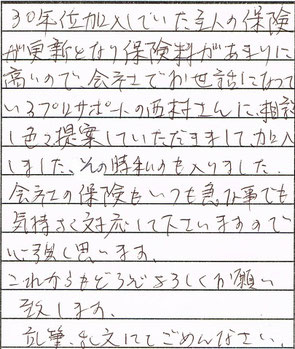 30年位加入していた主人の保険
が更新となり保険料があまりに
高いので、会社でお世話になって
いるプロサポートの西村さんに、相談
し色々提案していただきまして、加入
しました、その時私のも入りました。
会社の保険もいつも急な事でも
気持よく対応して下さいますので
心強く思います。
これからもどうぞよろしくお願い
致します。
乱筆、乱文にてごめんなさい。